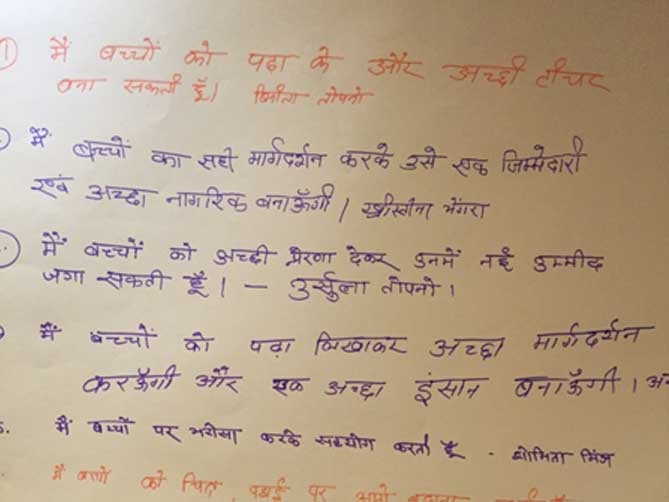 1 मैं बच्चों को पढ़ा के और अच्छी टीचर
बना सकती हूँ। विनीता तोपनो
मैं बच्चों का सही मार्गदर्शन करके उसे एक जिम्मेदारी
एवं अच्छा नागरिक बनाऊँगी। ख्रीस्तीना भेंगरा
मैं बच्चों को अच्छी प्रेरणा देकर उनमें नई उम्मीद
जगा सकती हूँ। - उर्सुला तोपनो।
मैं बच्चों को पढ़ा लिखाकर अच्छा मार्गदर्शन
करऊँगी और एक अच्छा इंसान बनाऊँगी।
5. मैं बच्चों पर भरोसा करके सहयोग करती हूँ - शोभिता मिंज
मैं बच्चों को पर आगे